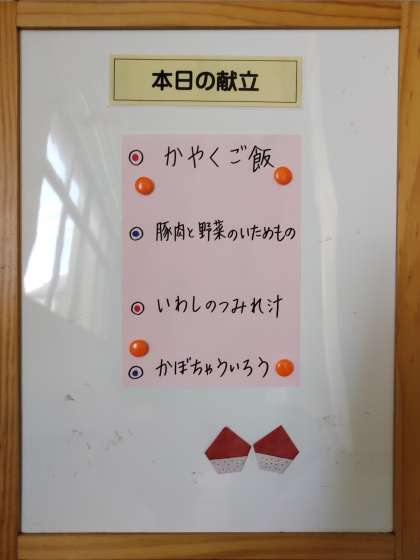 本日の献立
かやくご飯
豚肉と野菜のいためもの
いわしのつみれ汁
かぼちゃういろう